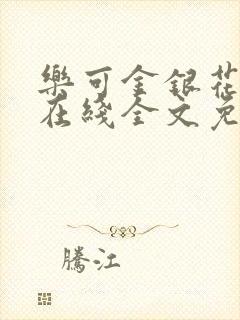 樂可金銀花
在綫全文免
騰江